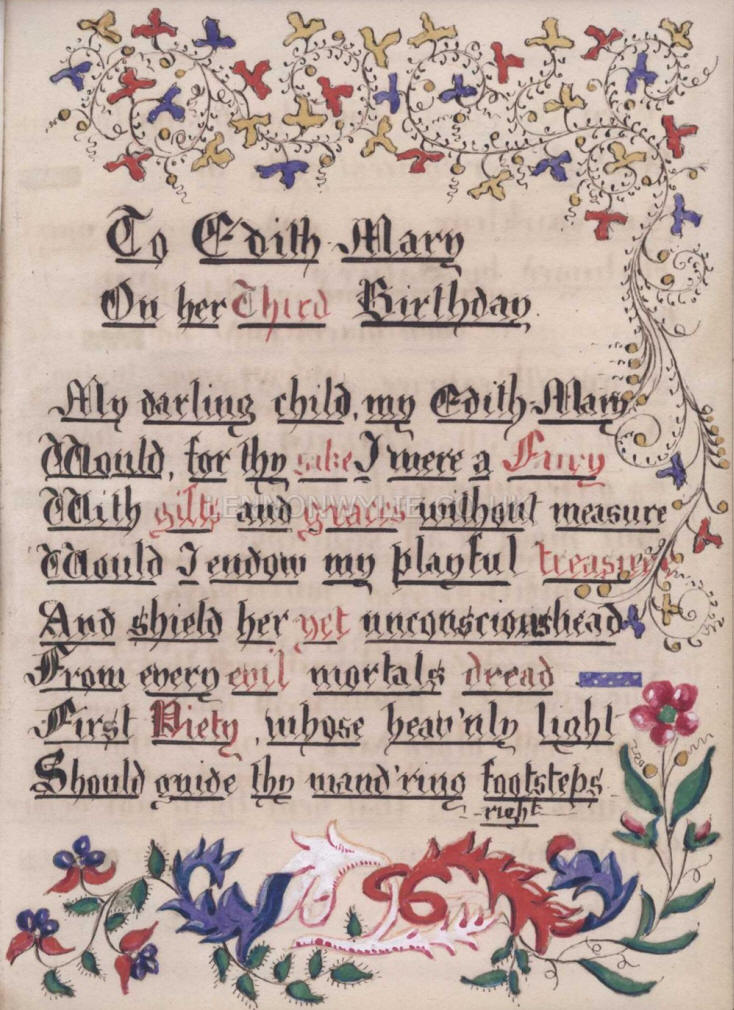 To Edith Mary
On her Third Birthday.
My darling child, my Edith Mary
Would, for thy sake I were a Fairy
With gifts and graces without measure
Would I endow my playful treasure
And shield her yet unconscious head
From every evil mortals dread
First Piety, whose heav'nly light
Should guide thy wand'ring footsteps
right
LENNONWYLIE.CO.UK